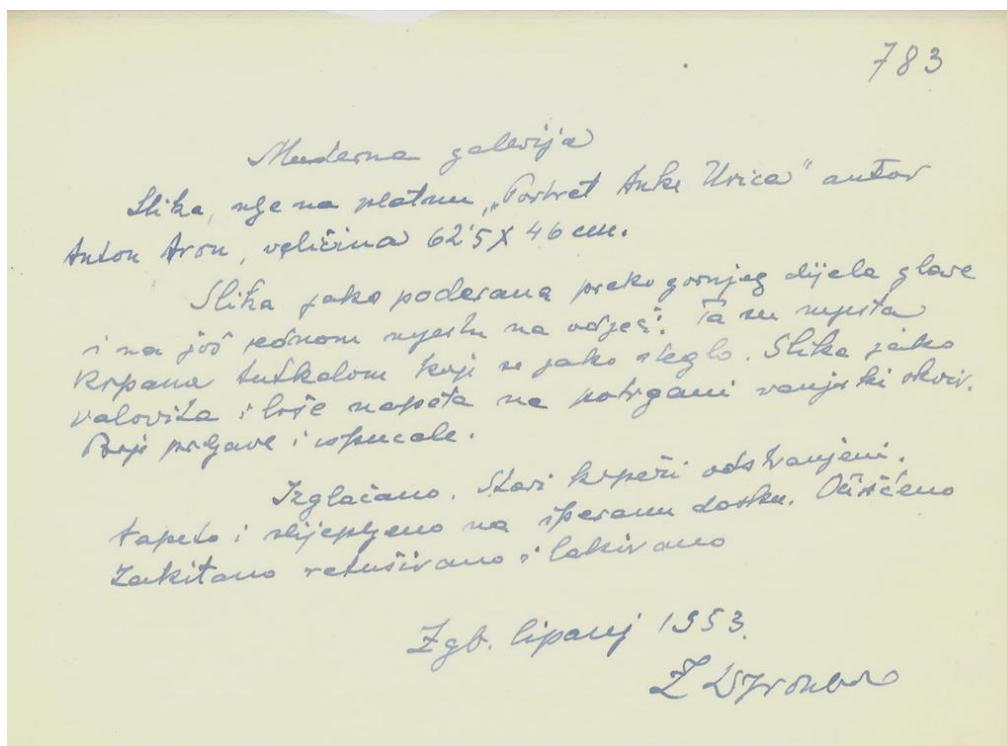 783
Moderna galerija
Slika, ulje na platnu „Portret Anke Urica" autor
Anton Aron, veličina 62'5 X 46 cm.
Slika jako poderana preko gornjeg dijela glave
i na još jednom mjestu na odjeći. Ta su mjesta
krpana tutkalom koji se jako steglo. Slika jako
valovita i loše napeta na potrgani vanjski okvir.
Boje prljave i ispucale.
Izglačano. Stari krpeži odstranjeni.
Napeto i slijepljeno na šperanu dasku. Očišćeno
Zakitano retuširano i lakirano
Zgb. lipanj 1953.
Z